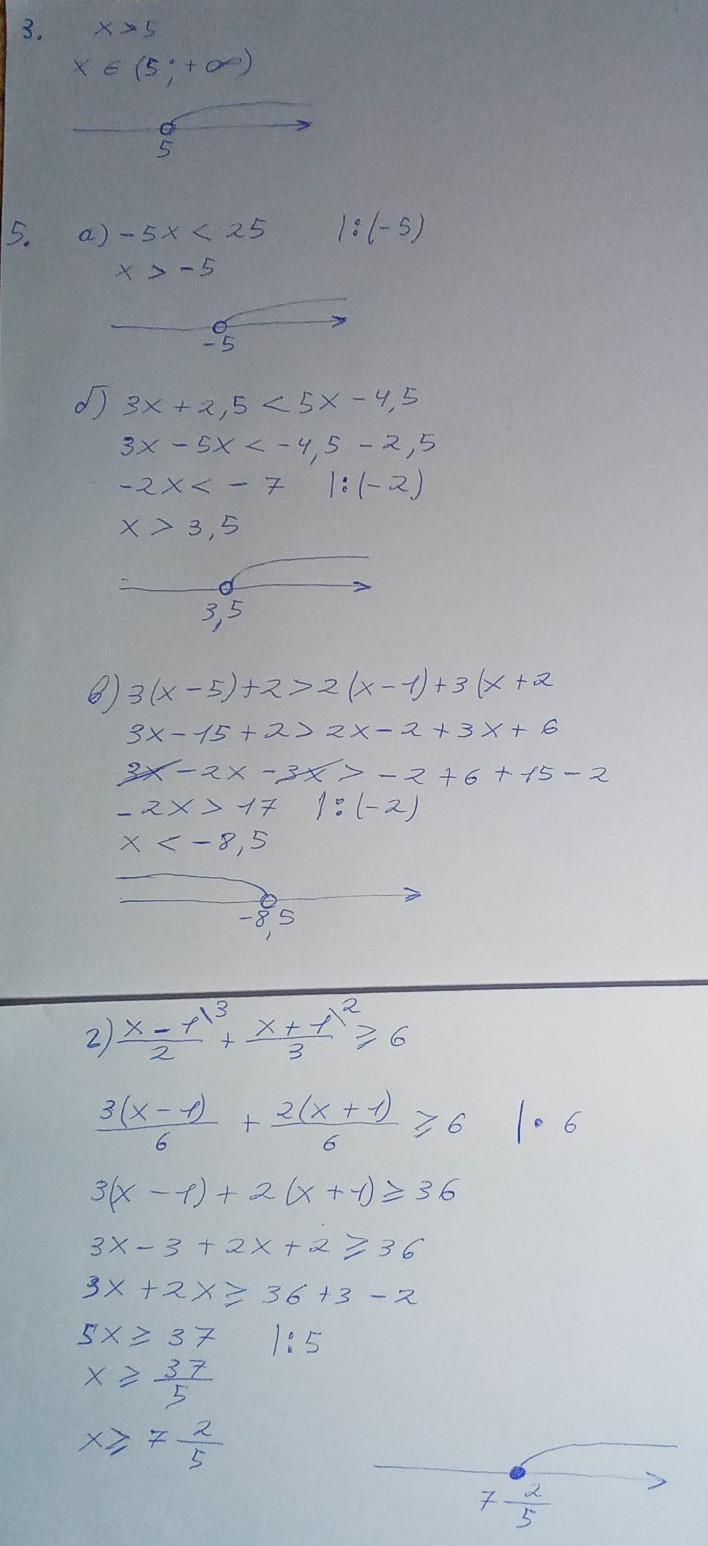 3. x > 5
x ∈ (5; +∞)
5
5. а) -5x < 25 |:(-5)
x > -5
-5
б) 3x + 2,5 < 5x - 4,5
3x - 5x < -4,5 - 2,5
-2x < -7 |:(-2)
x > 3,5
3,5
в) 3(x-5)+2 > 2(x-1)+3(x+2
3x-15+2 > 2x-2+3x+6
3x-2x-3x > -2+6+15-2
-2x > 17 |:(-2)
x < -8,5
-8,5
г) \frac{x-1}{2}\3 + \frac{x+1}{3}\2 ⩾ 6
\frac{3(x-1)}{6} + \frac{2(x+1)}{6} ⩾ 6 |· 6
3(x-1) + 2(x+1) ⩾ 36
3x-3+2x+2 ⩾ 36
3x+2x ⩾ 36+3-2
5x ⩾ 37 |:5
x ⩾ \frac{37}{5}
x ⩾ 7 \frac{2}{5}
7 \frac{2}{5}